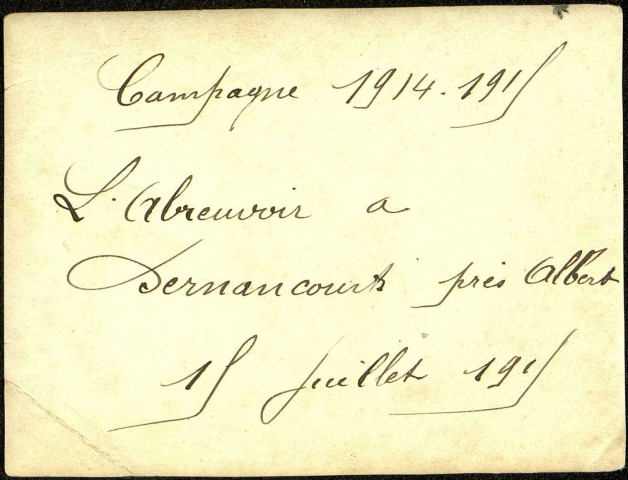 Campagne 1914-1915
L'Abreuvoir a
Dernancourt près Albert
15 Juillet 1915